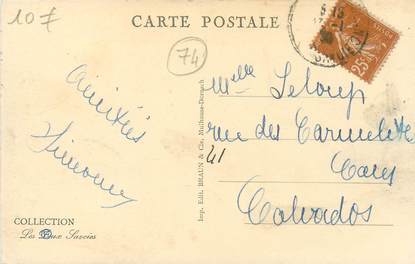 10 F
CARTE POSTALE
74
25c
Amitiés
Simone
Melle Leloup
rue des Carmelites
41
Caen
Calvados
Imp. Edit. BRAUN & Cie, Mulhouse-Dornach
COLLECTION
Les Deux Savoies